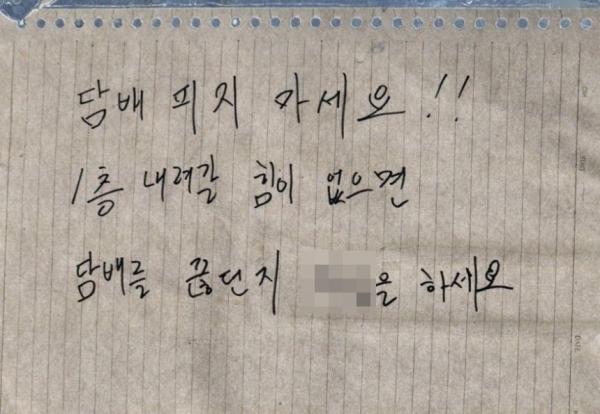 담배 피지 마세요!!
1층 내려갈 힘이 없으면
담배를 끊던지 을 하세요